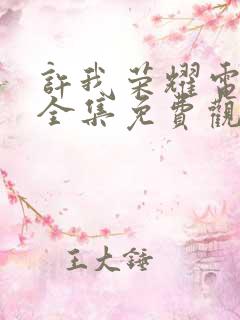 許我荣耀電
全集免費觀
王大錘